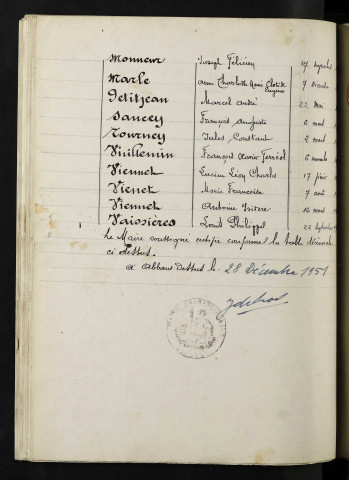 Monneur Joseph Félicien 27
Marle Anne Charlotte Marie Clotilde Eugénie 7
Petitjean Marcel André 22 Mai
Sancey François Auguste 2
Tourney Jules Constant 2
Vuillemin François Xavier Ferréol 6
Viennet Lucien Léon Charles 17
Vienet Marie Françoise 7 août
Viennet Antoine Isidore 16
Vaissières Louis Philippe 22
Le Maire soussigné certifie conforme la table décennale
ci dessus.
a Abbans Dessus le 28 Décembre 1951